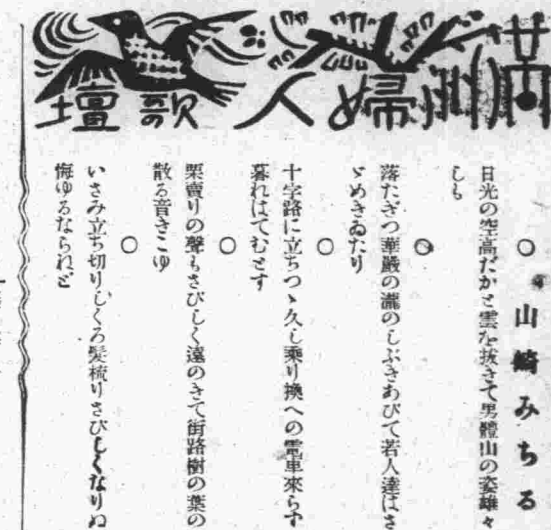 満洲婦人歌壇
山崎みちる
○
日光の空高だかと雲を抜きて男體山の姿雄々
しも
○
落たぎつ華嚴の瀧のしぶきあびて若人達はさ
ゞめきゐたり
○
十字路に立ちつゝ久し乘り換への電車來らず
暮れはてむとす
○
栗賣りの聲もさびしく遠のきて街路樹の葉の
散る音きこゆ
○
いさみ立ち切りしくろ髪梳りさびしくなりぬ
悔ゆるならねど